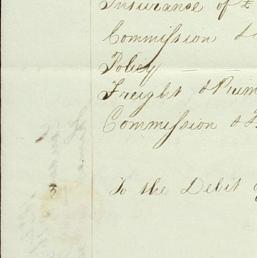 Insurance of £
Commission &
Policy
Freight & Prim
Commission &
To the Debit